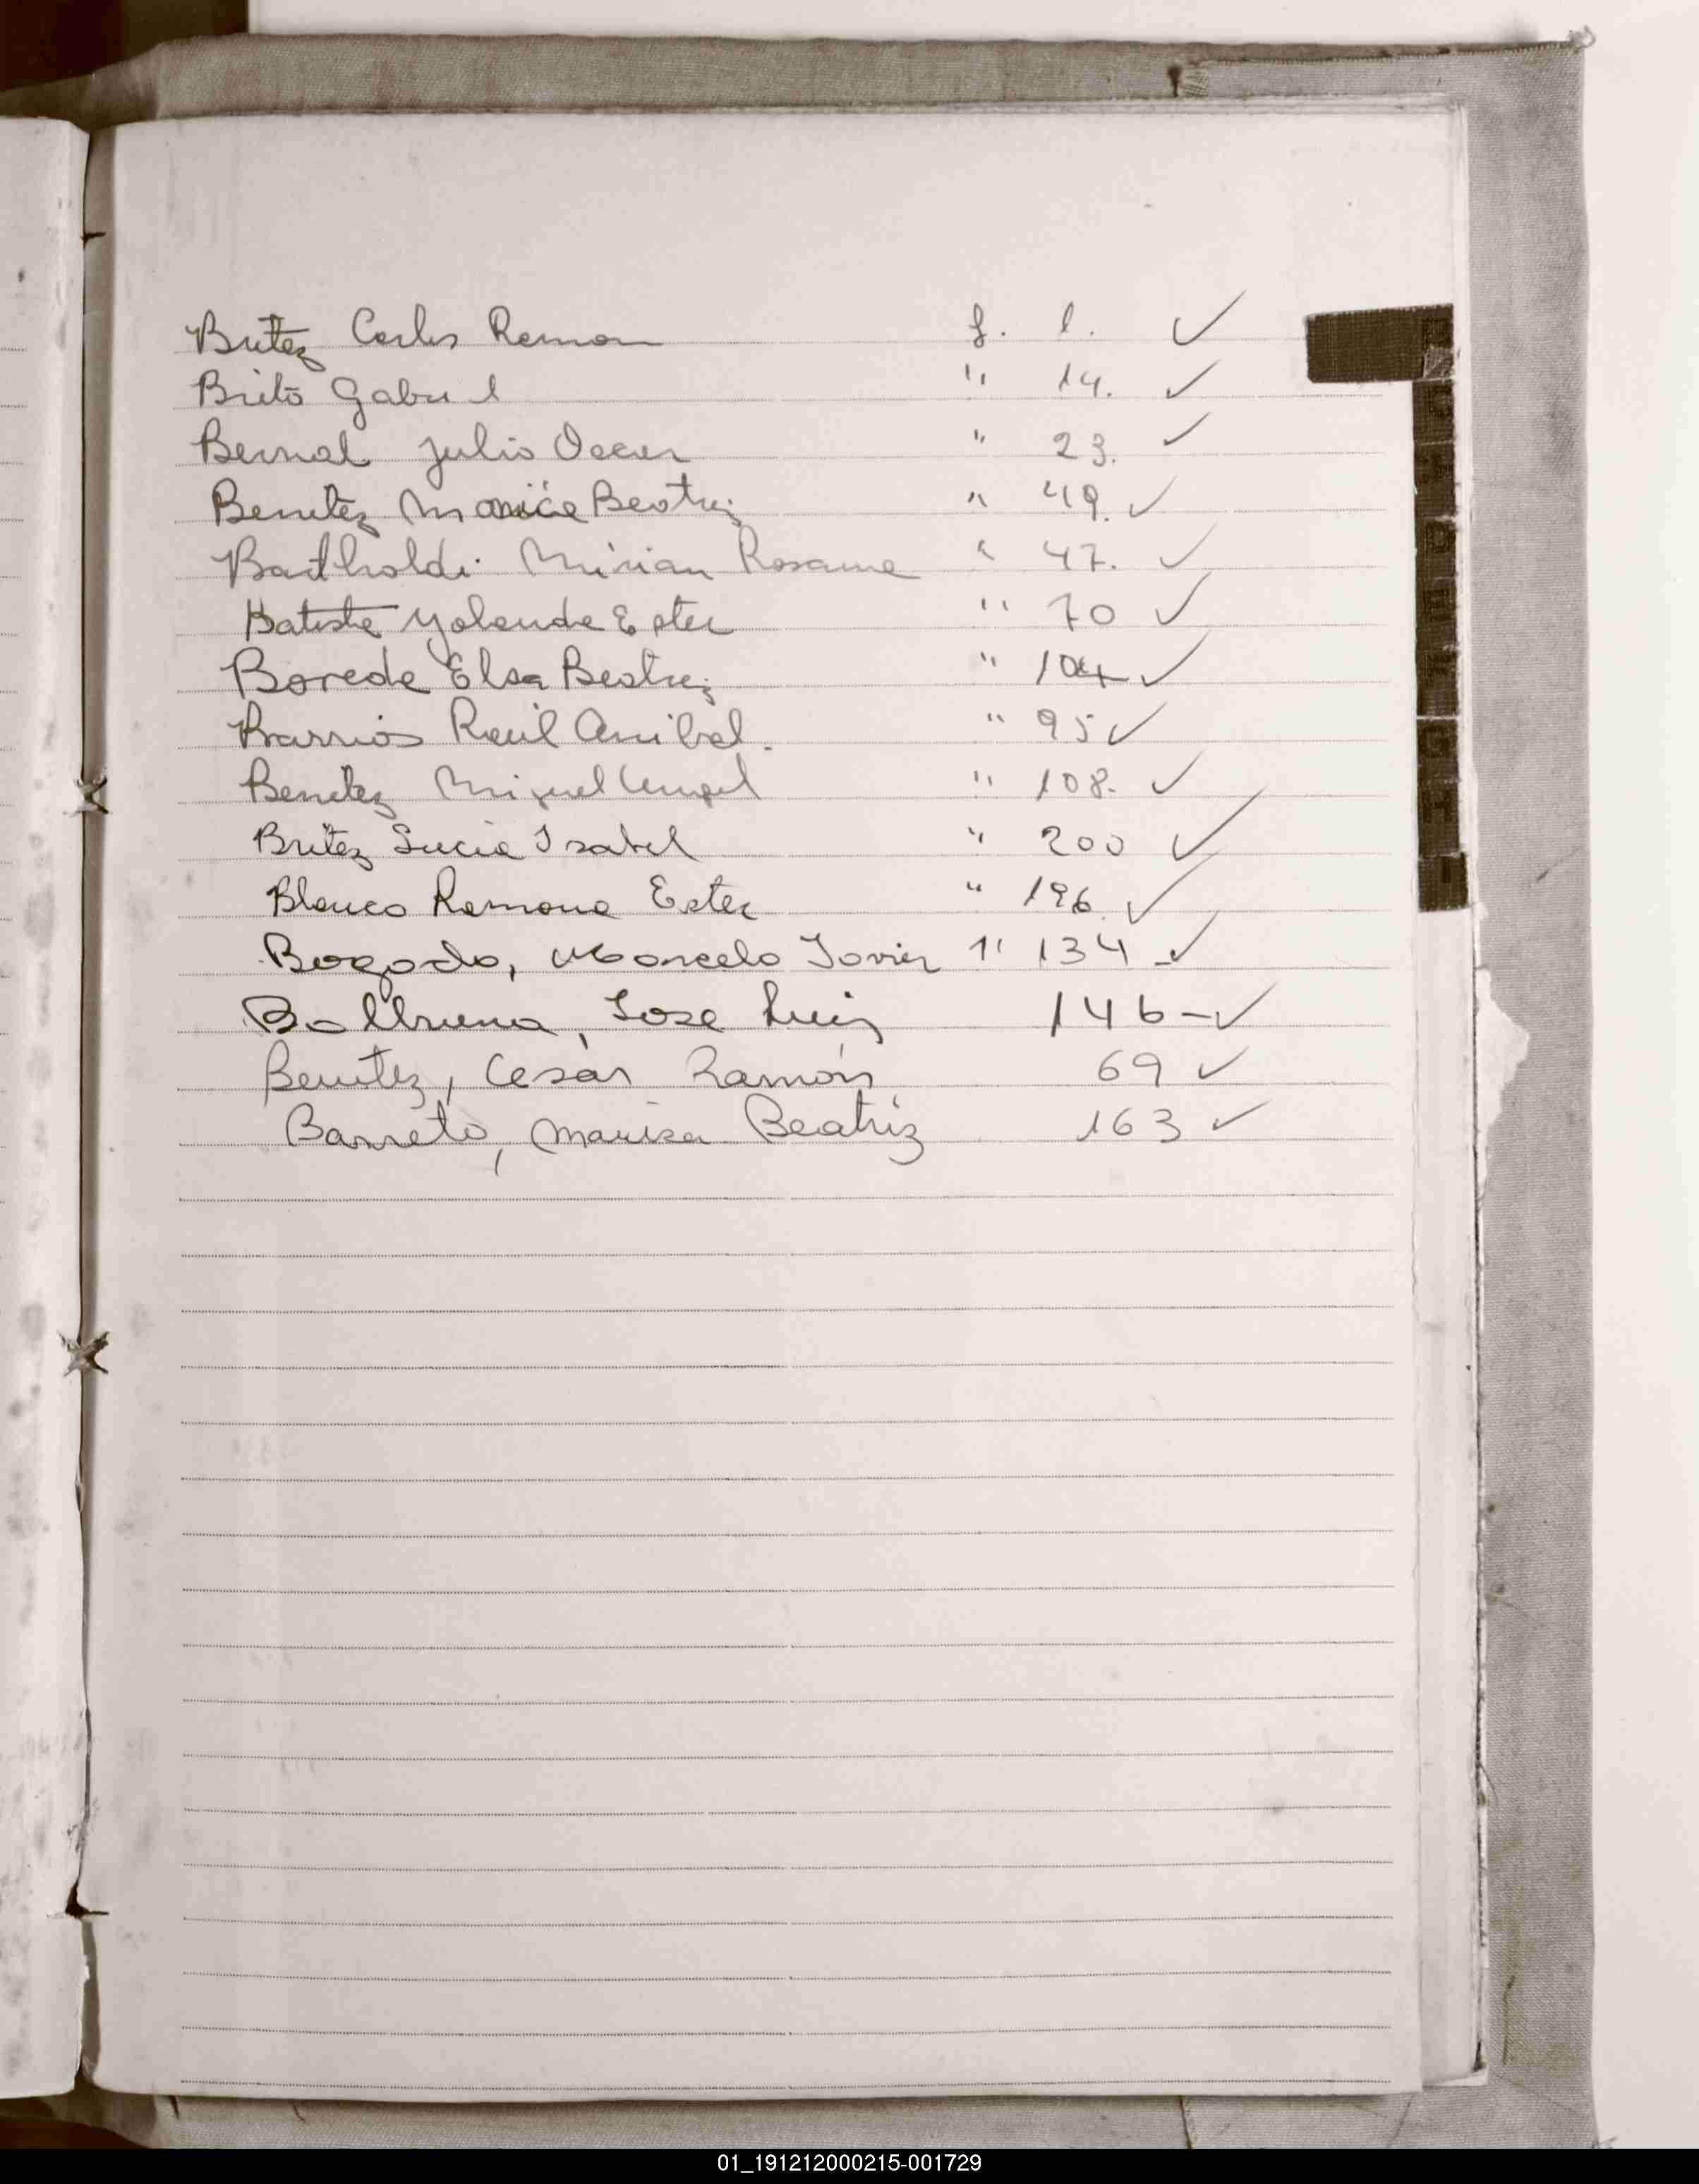 Britez Carlos Ramon f. 1. ✓
Brito Gabriel " 14. ✓
Bernal Julio Oscar " 23. ✓
Benitez Monica Beatriz " 49. ✓
Bartholdi Mirian Rosana " 47. ✓
Batista Yolanda Ester " 70 ✓
Elsa Beatriz " 104 ✓
Barrios Raúl Anibal. " 95 ✓
Benitez Miguel Angel " 108. ✓
Britez Lucia Isabel " 200 ✓
Blanco Ramona Ester " 196. ✓
Bogado, Marcelo Javier " 134 - ✓
Balbuena, Jose Luis 146 - ✓
Benitez, Cesár Ramón 69 ✓
Barreto, Marisa Beatriz 163 ✓
C
D
E
F
G
H
I
01_191212000215-001729